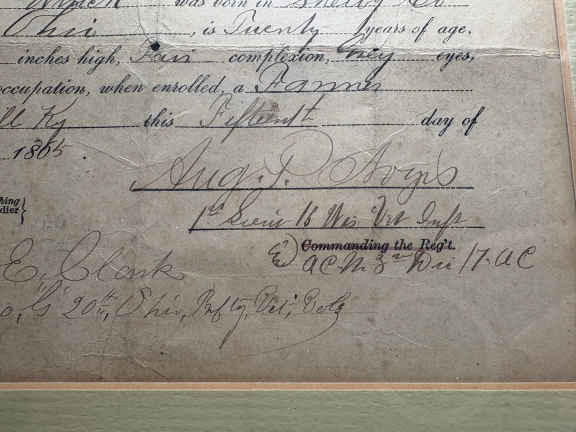 was born in Shelby Co
Ohio, is Twenty years of age,
inches high, Fair complexion, Grey eyes,
occupation, when enrolled, a Farmer
Ky this Fifteenth day of
1865.
Aug. P. Noyes
1st Lieut 16 Wis Vet Inft
Commanding the Reg't.
A.C.M. 3rd Div 17. A.C
E. Clark
Co, G 20th, Ohio, Vet, Vols